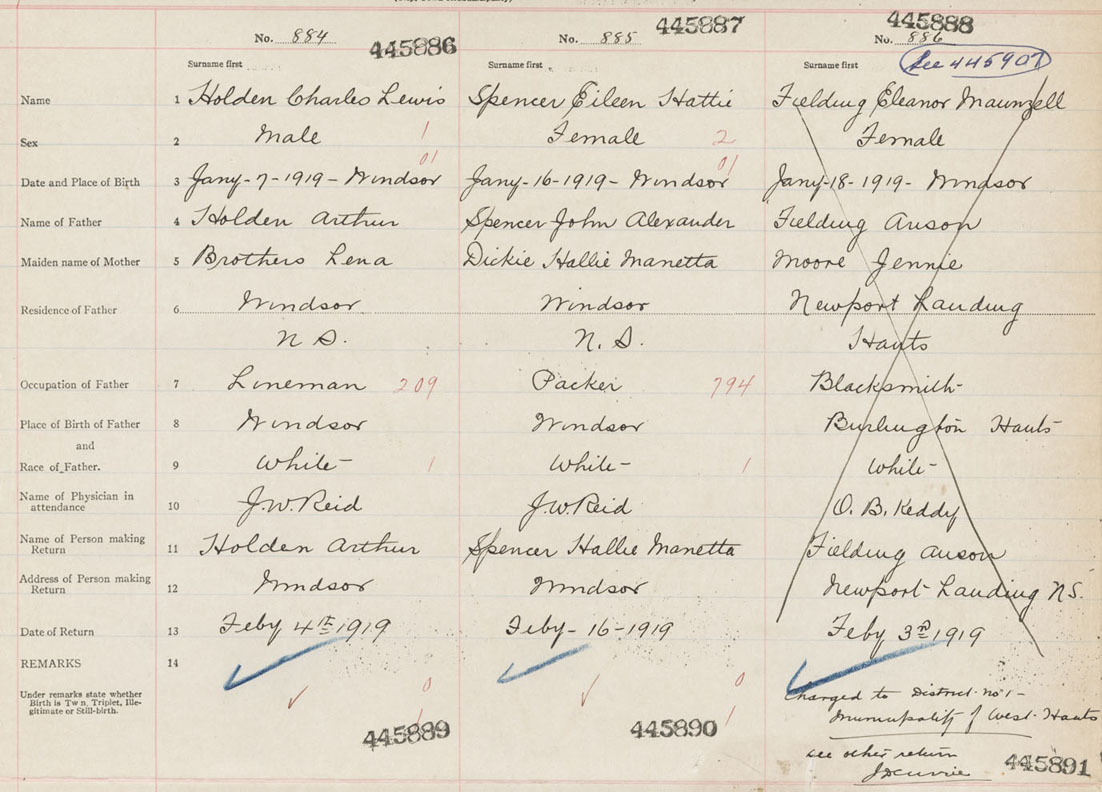 No. 884 445886 No. 885 445887 No. 886 445888
Surname first Surname first Surname first See 445907
Name 1 Holden Charles Lewis Spencer Eileen Hattie Fielding Eleanor Maunzell
Sex 2 Male 1 Female 2 Female
01 01
Date and Place of Birth 3 Jany-7-1919- Windsor Jany-16-1919- Windsor Jany-18-1919- Windsor
Name of Father 4 Holden Arthur Spencer John Alexander Fielding Anson
Maiden name of Mother 5 Brothers Lena Dickie Hallie Manetta Moore Jennie
Residence of Father 6 Windsor Windsor Newport Landing
N S. N. S. Hants
Occupation of Father 7 Lineman 209 Packer 794 Blacksmith-
Place of Birth of Father 8 Windsor Windsor Burlington Hants-
and
Race of Father. 9 White- 1 White- 1 White-
Name of Physician in attendance 10 J.W. Reid J.W. Reid O. B. Keddy
Name of Person making Return 11 Holden Arthur Spencer Hallie Manetta Fielding Anson
Address of Person making Return 12 Windsor Windsor Newport Landing N.S.
Date of Return 13 Feby 4th 1919 Feby-16-1919 Feby 3rd 1919
REMARKS 14
Under remarks state whether Birth is Twn, Triplet, Ille-
gitimate or Still-birth.
0 0
1 1
Charged to District no 1-
Municipality of West-Hants
see other return
445889 445890 445891